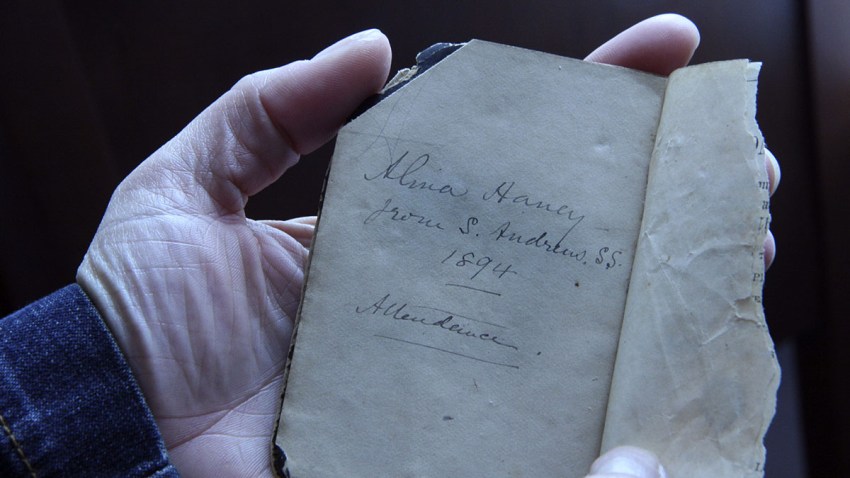 Alma Haney
from S. Andrews. S.S.
1894
Attendance.